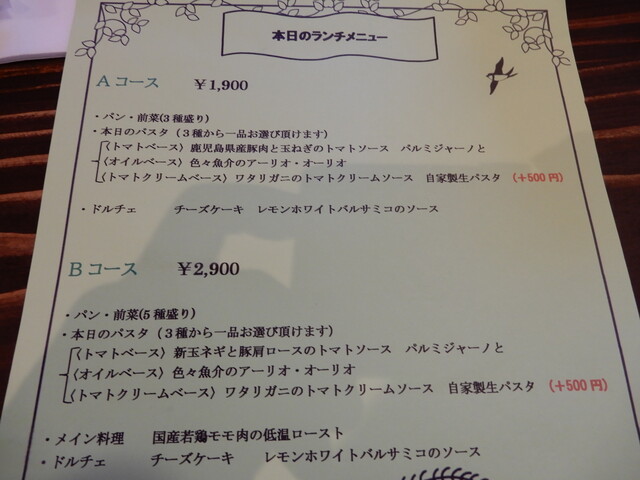 本日のランチメニュー
Aコース ￥1,900
・パン・前菜(3種盛り)
・本日のパスタ（３種から一品お選び頂けます）
〈トマトベース〉鹿児島県産豚肉と玉ねぎのトマトソース パルミジャーノと
〈オイルベース〉色々魚介のアーリオ・オーリオ
〈トマトクリームベース〉ワタリガニのトマトクリームソース 自家製生パスタ （＋500円）
・ドルチェ チーズケーキ レモンホワイトバルサミコのソース
Bコース ￥2,900
・パン・前菜(5種盛り)
・本日のパスタ（３種から一品お選び頂けます）
〈トマトベース〉新玉ネギと豚肩ロースのトマトソース パルミジャーノと
〈オイルベース〉色々魚介のアーリオ・オーリオ
〈トマトクリームベース〉ワタリガニのトマトクリームソース 自家製生パスタ （＋500円）
・メイン料理 国産若鶏モモ肉の低温ロースト
・ドルチェ チーズケーキ レモンホワイトバルサミコのソース